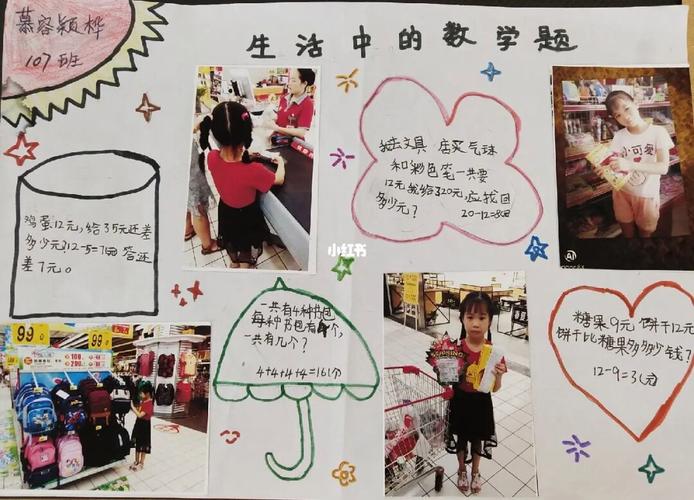 慕容颖桦
107班
生活中的数学题
我去文具店买气球
和彩色笔一共要
12元我给320元应找回
多少元?
20-12=8(元)
小可爱
鸡蛋12元,给了5元还差
多少元?12-5=7(元) 答还
差7元。
小红书
一共有4种书包
每种书包有4个,
一共有几个?
4+4+4+4=16(个)
糖果9元 饼干12元
饼干比糖果多多少钱?
12-9=3(元)
99
99